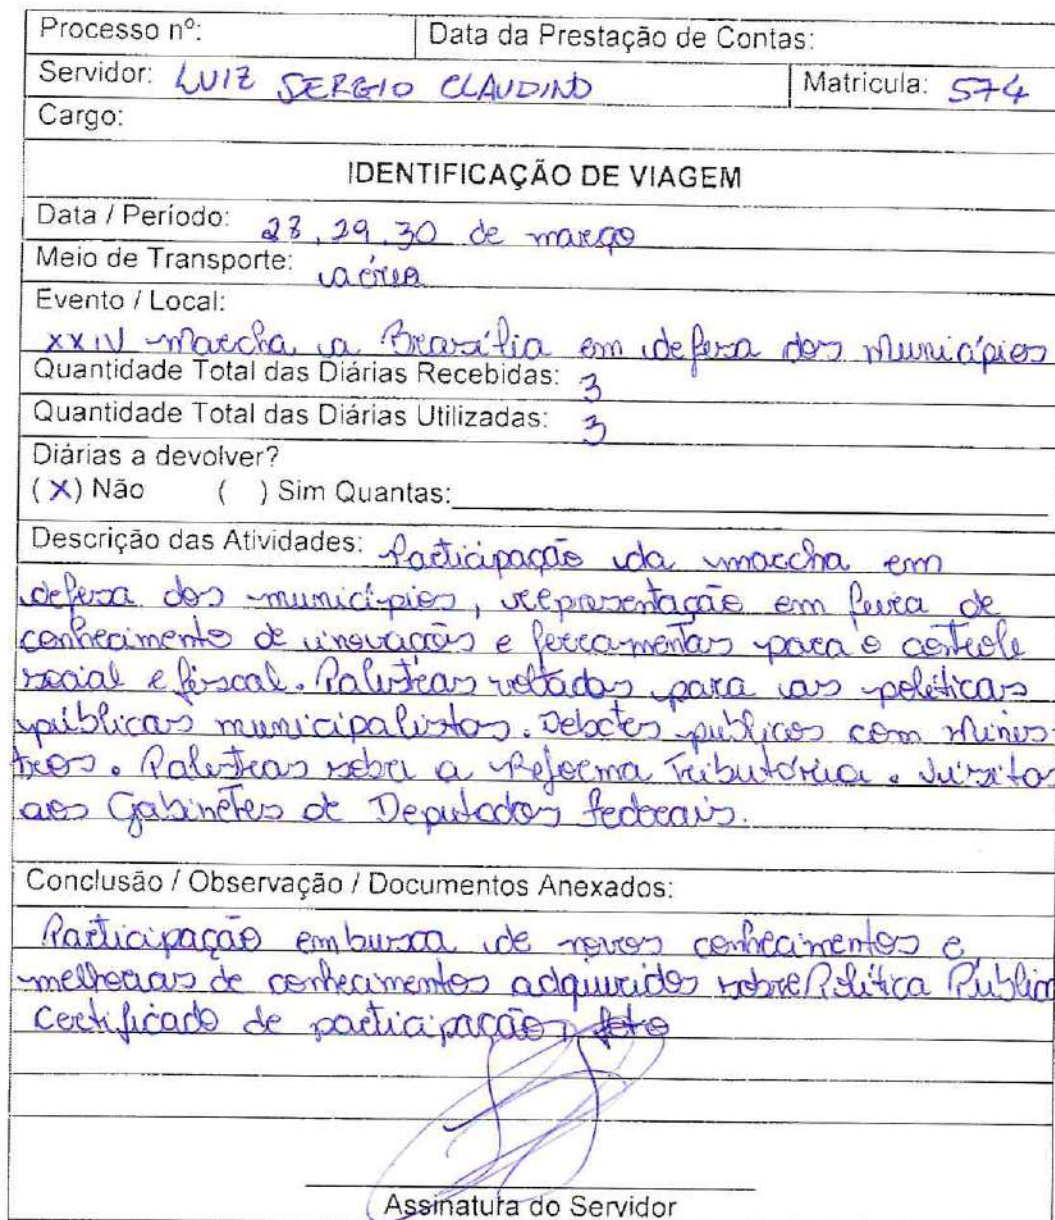 Processo nº: Data da Prestação de Contas:
Servidor: LUIZ SERGIO CLAUDINO Matricula: 574
Cargo:
IDENTIFICAÇÃO DE VIAGEM
Data / Período: 28, 29, 30 de março
Meio de Transporte: aérea
Evento / Local:
XXIV marcha a Brasília em defesa dos Municípios
Quantidade Total das Diárias Recebidas: 3
Quantidade Total das Diárias Utilizadas: 3
Diárias a devolver?
(X) Não ( ) Sim Quantas:
Descrição das Atividades: Participação da marcha em
defesa dos municípios, representação em feira de
conhecimento de inovações e ferramentas para o controle
social e fiscal. Palestras voltadas para as políticas
públicas municipalistas. Debates públicos com Minis-
tros. Palestras sobre a Reforma Tributária. Visitas
aos Gabinetes de Deputados federais.
Conclusão / Observação / Documentos Anexados:
Participação em busca de novos conhecimentos e
melhorias de conhecimentos adquiridos sobre Política Pública
Certificado de participação, foto
Assinatura do Servidor